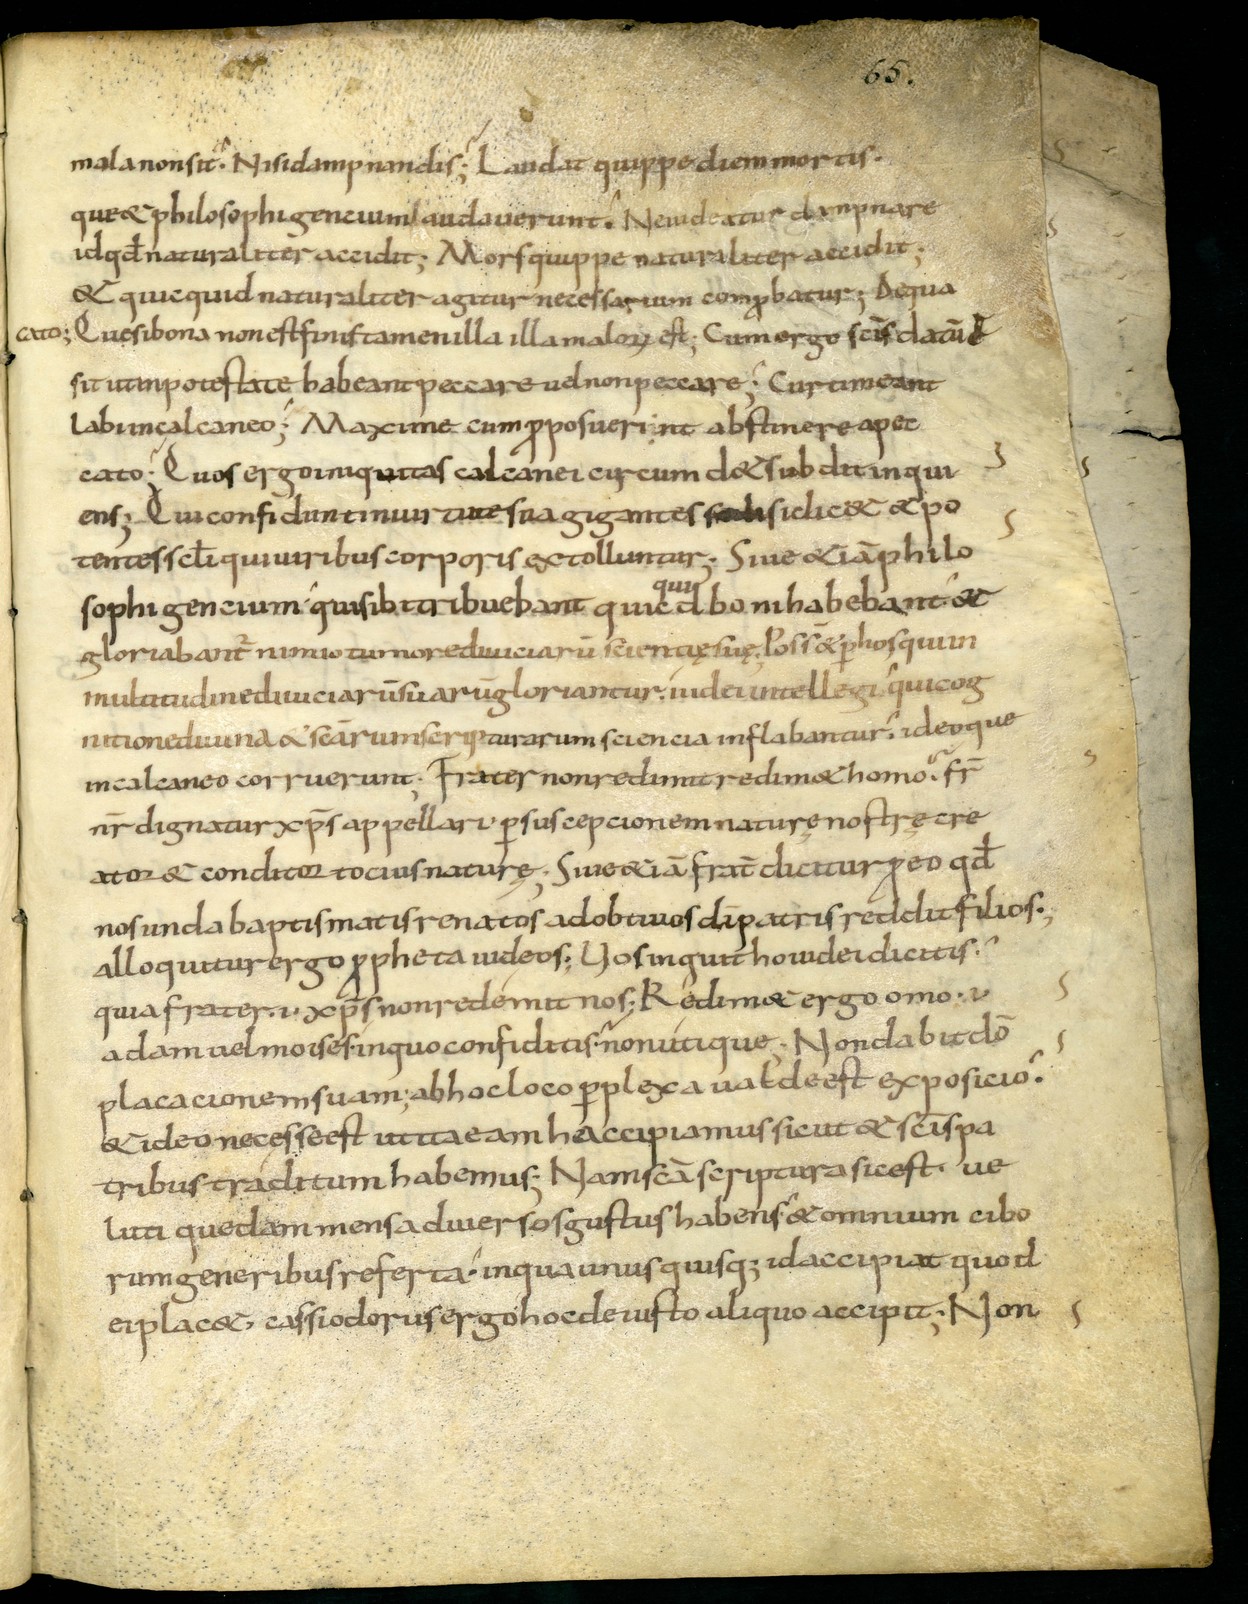 65.
mala non sit. Nisi dampnandis; Laudat quippe diem mortis.
que & philosophi gencium laudaverunt. Ne uideatur dampnare
id qđ naturaliter accidit; Mors quippe naturaliter accidit;
& quicquid naturaliter agitur necessarium comꝓbatur; De qua
cato; Que si bona non est finis tamen illa illa maloꝝ est; Cum ergo sc̄is datū
sit ut in potestate habeant peccare uel non peccare; Cur timeant
labi in calcaneo; Maxime cum ꝓposuerint abstinere a pec
cato; Quos ergo iniquitas calcanei circumd& subdit inqui
ens; Qui confidunt in uirtute sua gigantes si lic& & po
tentes scłi qui uiribus corporis extolluntur; Siue &iā philo
sophi gencium qui sibi tribuebant quicquid boni habebant &
gloriabant̃ nimio tumore diuiciarū scientię suę; Poss& ꝑ hos qui in
multitudine diuiciarū suarū gloriantur. iudei intellegi qui cog
nitione diuina & sc̄arum scripturarum sciencia inflabantur. ideoque
in calcaneo corruerunt; Frater non redimit redim& homo. fr̄
nr̄ dignatur xp̄s appellari. ꝑ suscepcionem naturę nostrę cre
ator & conditor tocius naturę; Siue &iā frat̄ dicitur ꝓ eo qđ
nos unda baptismatis renatos adobtiuos dī patris reddit filios.;
alloquitur ergo ꝓpheta iudeos; Vos inquit ho iudei dicitis.
quia frater .i. xp̄s non redemit nos; Redim& ergo omo .i.
adam uel moises. in quo confiditis. non utique; Non dabit dō
placacionem suam; ab hoc loco ꝑplexa ualde est exposicio.
& ideo necesse est ut ita eam h accipiamus sicut & sc̄is pa
tribus traditum habemus; Nam sc̄a scriptura sic est. ue
luti quedam mensa diuersos gustus habens & omnium cibo
rum generibus referta. in qua unusquisqꝫ id accipiat quod
ei plac&. cassiodorus ergo hoc de iusto aliquo accipit; Non